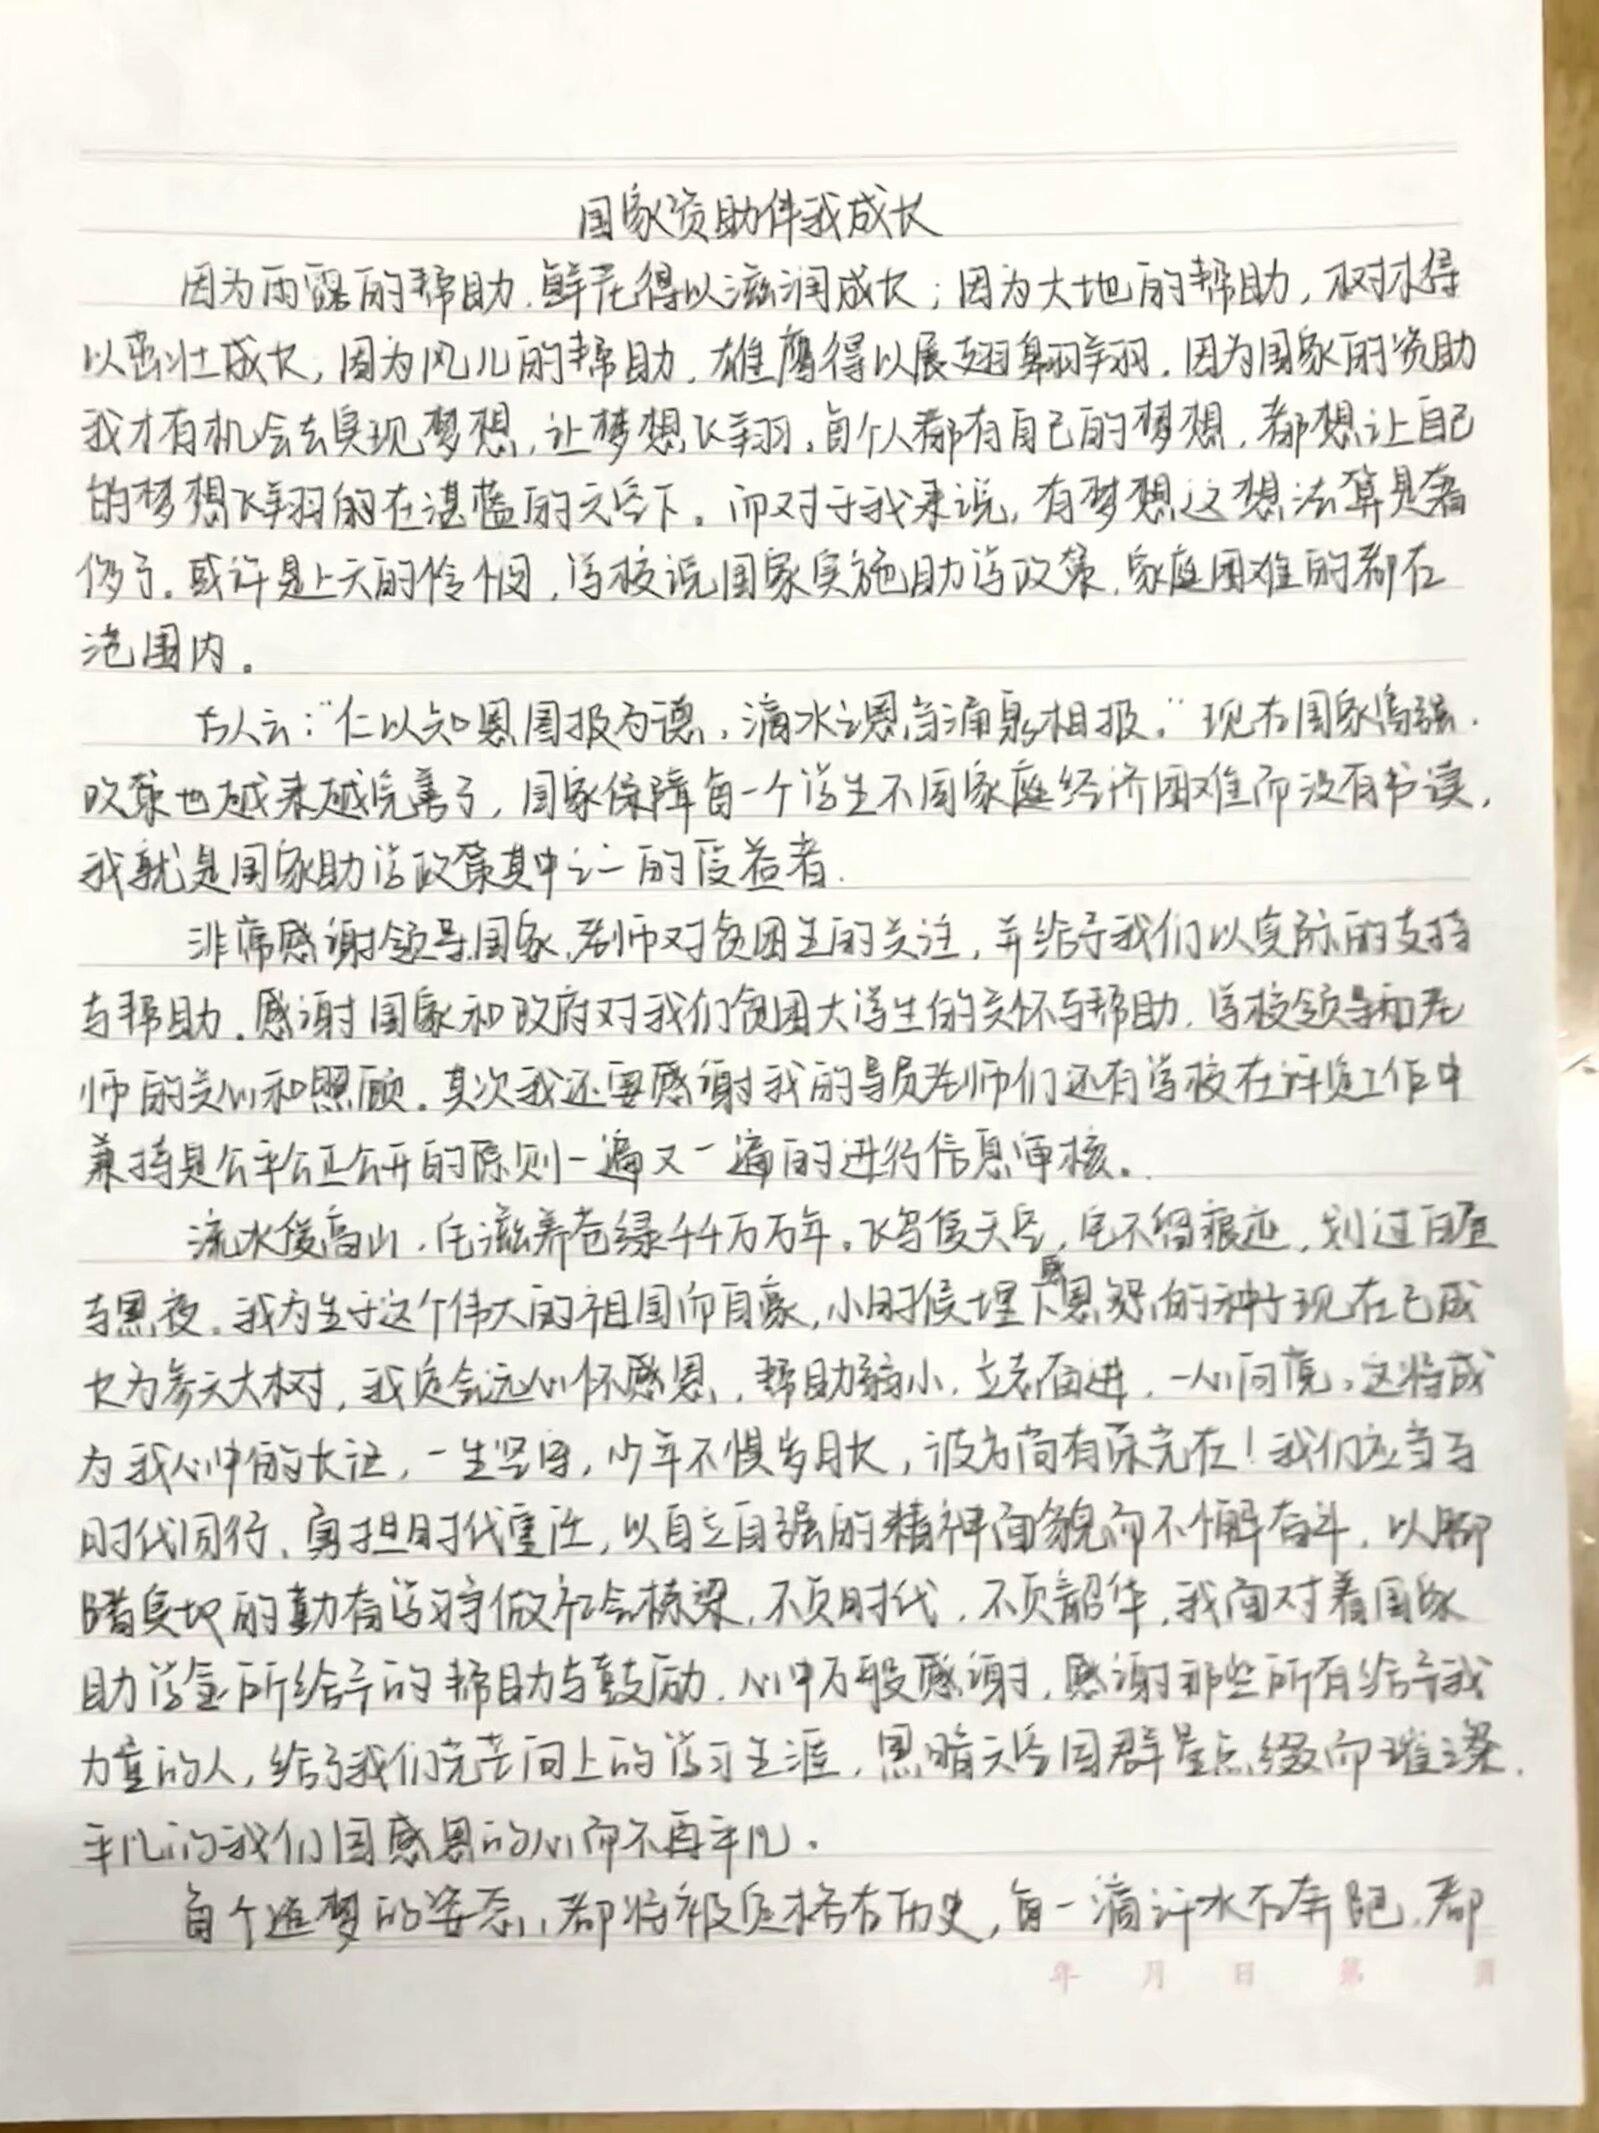 国家资助伴我成长
因为雨露的帮助，鲜花得以滋润成长；因为大地的帮助，树木得
以茁壮成长；因为风儿的帮助，雄鹰得以展翅翱翔，因为国家的资助
我才有机会去实现梦想，让梦想飞翔。每个人都有自己的梦想，都想让自己
的梦想飞翔的在湛蓝的天空下。而对于我来说，有梦想这想法算是奢
侈了。或许是上天的怜悯，学校说国家实施助学政策，家庭困难的都在
范围内。
古人云：“仁以知恩图报为德，滴水之恩当涌泉相报。”现在国家富强，
政策也越来越完善了，国家保障每一个学生不因家庭经济困难而没有书读，
我就是国家助学政策其中之一的受益者.
非常感谢领导国家,老师对贫困生的关注，并给予我们以实际的支持
与帮助。感谢国家和政府对我们贫困大学生的关怀与帮助，学校领导和老
师的关心和照顾。其次我还要感谢我的导员老师们还有学校在评选工作中
兼持是公平公正公开的原则一遍又一遍的进行信息审核。
流水傍高山，它滋养苍绿千千万万年。飞鸟傍天空，它不留痕迹，划过白昼
与黑夜。我为生于这个伟大的祖国而自豪，小时候埋下感恩的种子现在已成
长为参天大树，我定会心怀感恩，帮助弱小，立志奋进，一心向党。这将成
为我心中的长征，一生坚守，少年不惧岁月长，彼方尚有荣光在！我们应当与
时代同行、勇担时代重任，以自立自强的精神面貌而不懈奋斗，以脚
踏实地的勤奋学习争做社会栋梁，不负时代，不负韶华，我面对着国家
助学金所给予的帮助与鼓励，心中万般感谢，感谢那些所有给予我
力量的人，给了我们光芒向上的学习生涯，黑暗天空因群星点缀而璀璨，
平凡的我们因感恩的心而不再平凡。
每个追梦的姿态，都将被定格在历史，每一滴汗水在奔跑，都
年 月 日 第 页